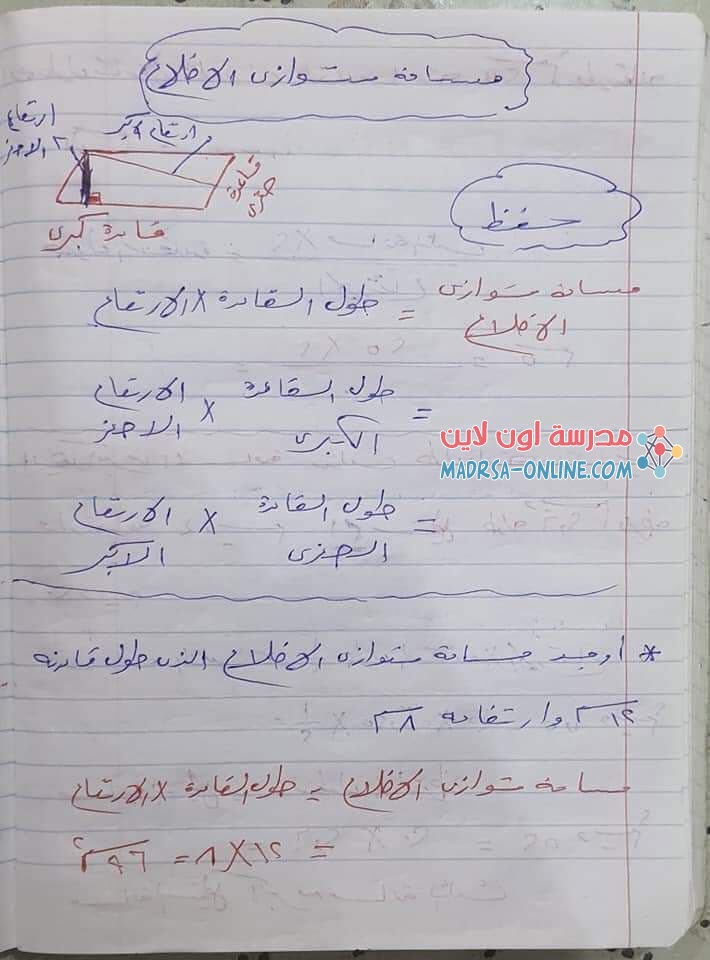 مساحة متوازى الاضلاع
ارتفاع
الاصغر
ارتفاع اكبر
قاعدة
صغرى
قاعدة كبرى
حفظ
مساحة متوازى الاضلاع = طول القاعدة × الارتفاع
= طول القاعدة الكبرى × الارتفاع الاصغر
مدرسة اون لاين
MADRSA-ONLINE.COM
= طول القاعدة الصغرى × الارتفاع الاكبر
* أوجد مساحة متوازى الاضلاع الذى طول قاعدته
١٢سم وارتفاعه ٨سم
مساحة متوازى الاضلاع = طول القاعدة × الارتفاع
= ١٢ × ٨ = ٩٦سم٢